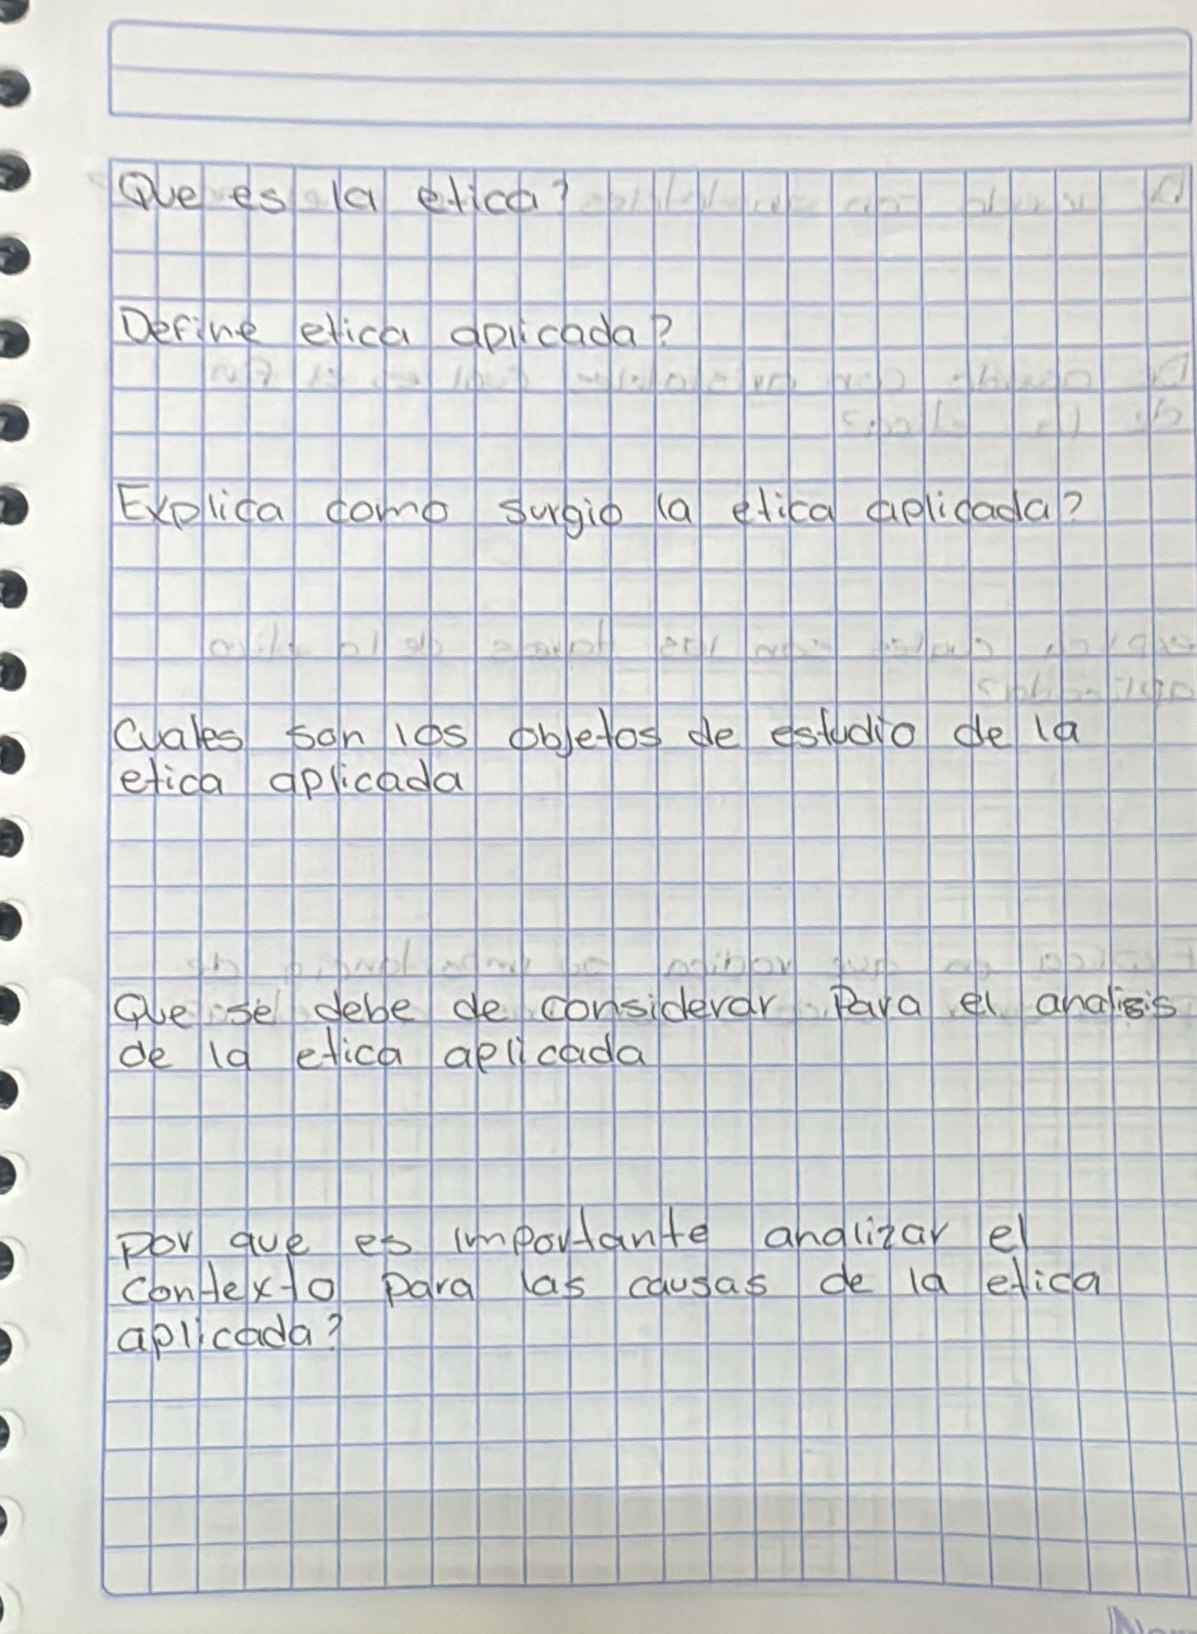 Que es la etica?
Define etica aplicada?
Explica como surgio la etica aplicada?
Cuales son los objetos de estudio de la
etica aplicada
Que se debe de considerar Para el analisis
de la etica aplicada
por que es importante analizar el
contexto para las causas de la etica
aplicada?